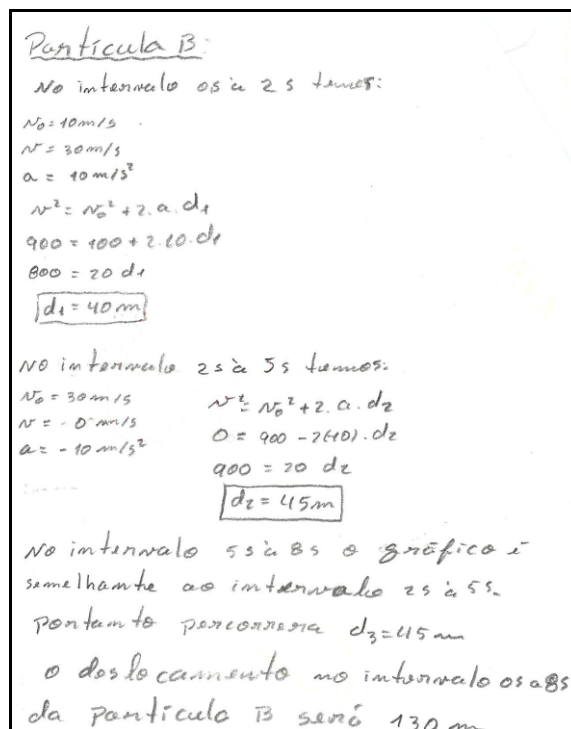 Partícula B:
No intervalo 0s à 2s temos:
v₀ = 10 m/s
v = 30 m/s
a = 10 m/s²
v² = v₀² + 2.a.d₁
900 = 100 + 2.10.d₁
800 = 20 d₁
d₁ = 40 m
No intervalo 2s à 5s temos:
v₀ = 30 m/s
v = 0 m/s
a = -10 m/s²
v² = v₀² + 2.a.d₂
0 = 900 - 2(10).d₂
900 = 20 d₂
d₂ = 45m
No intervalo 5s à 8s o gráfico é
semelhante ao intervalo 2s à 5s.
portanto percorrera d₃=45m
o deslocamento no intervalo 0s a 8s
da partícula B será 130 m